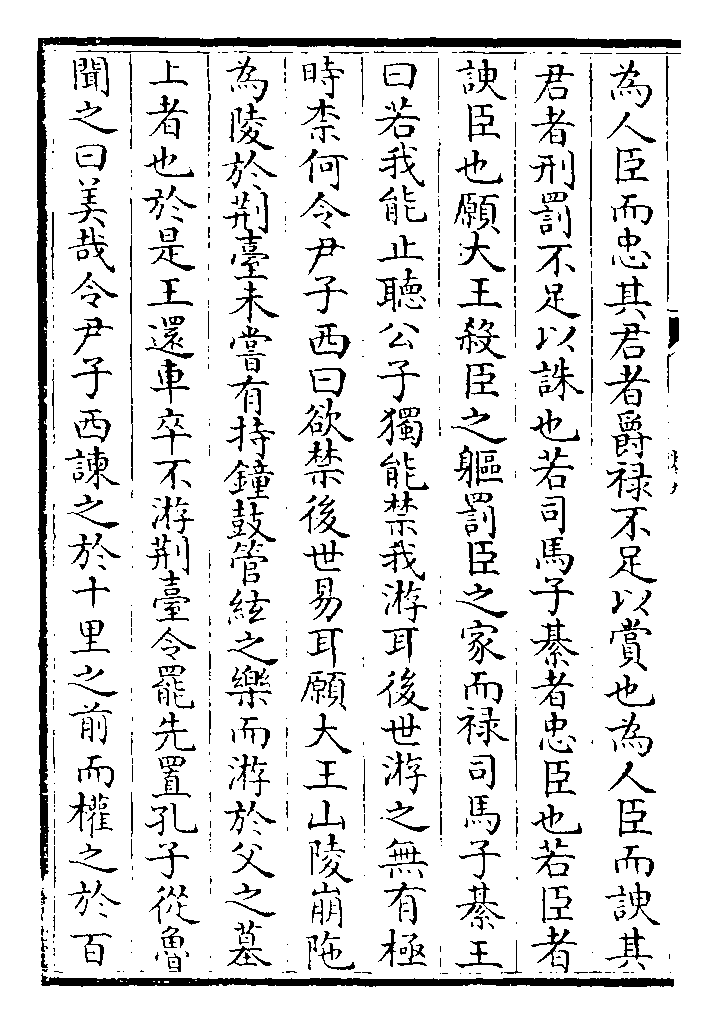 為人臣而忠其君者爵禄不足以賞也為人臣而諛其
君者刑罰不足以誅也若司馬子綦者忠臣也若臣者
諛臣也願大王殺臣之軀罰臣之家而禄司馬子綦王
曰若我能止聽公子獨能禁我游耳後世游之無有極
時柰何令尹子西曰欲禁後世易耳願大王山陵崩陁
為陵於荆臺未嘗有持鐘鼓管絃之樂而游於父之墓
上者也於是王還車卒不游荆臺令罷先置孔子從魯
聞之曰美哉令尹子西諫之於十里之前而權之於百